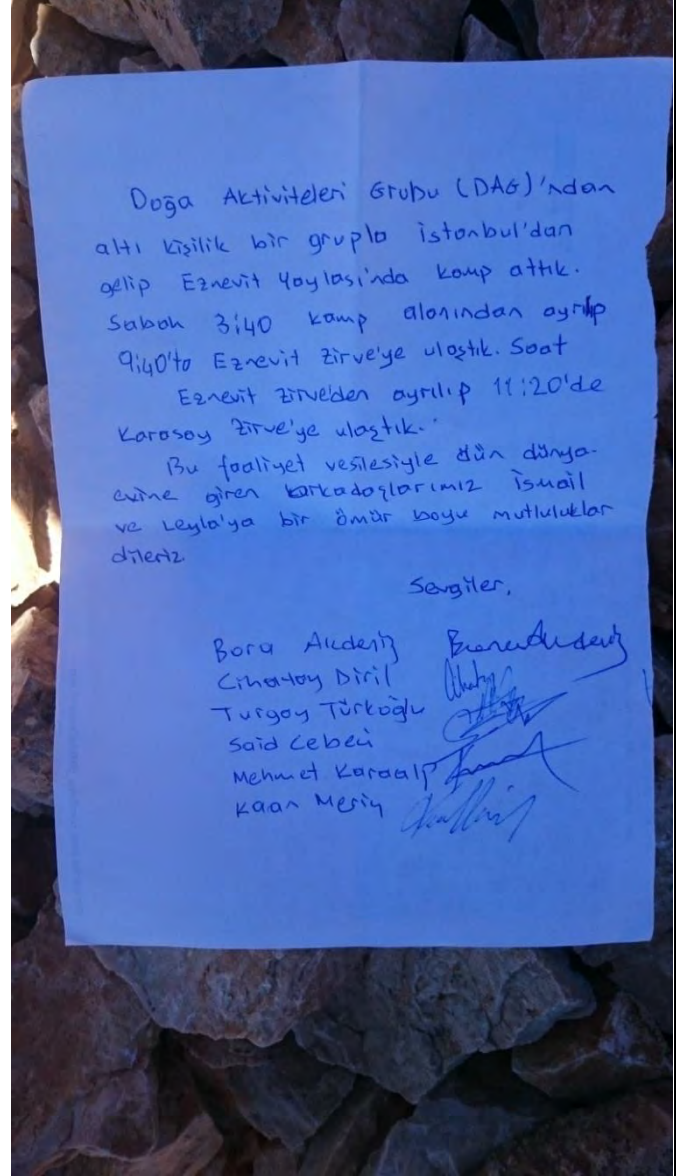 Doğa Aktiviteleri Grubu (DAG)'ndan
altı kişilik bir grupla İstanbul'dan
gelip Eznevit Yaylası'nda kamp attık.
Sabah 3:40 kamp alanından ayrılıp
9:40'ta Eznevit Zirve'ye ulaştık. Saat
Eznevit Zirve'den ayrılıp 11:20'de
Karasay Zirve'ye ulaştık.
Bu faaliyet vesilesiyle dün dünya-
evine giren arkadaşlarımız İsmail
ve Leyla'ya bir ömür boyu mutluluklar
dileriz
Sevgiler,
Bora Akdeniz Bora Akdeniz
Cihatay Diril
Turgay Türkoğlu
Said Cebeci
Mehmet Karaalp
Kaan Meriç